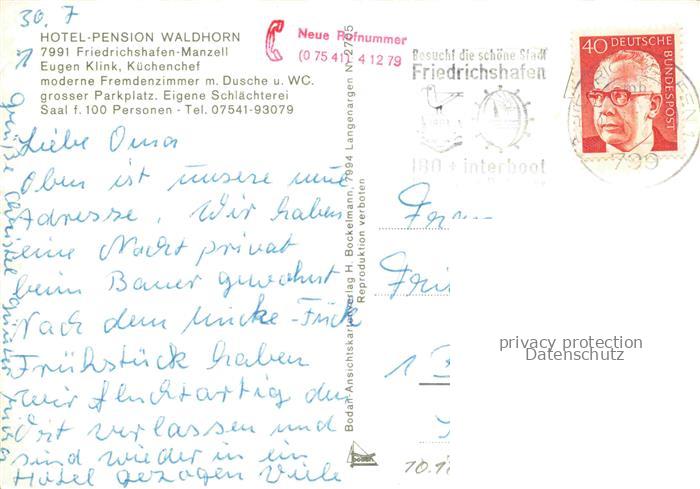 30. 7
HOTEL-PENSION WALDHORN
7991 Friedrichshafen-Manzell
Eugen Klink, Küchenchef
moderne Fremdenzimmer m. Dusche u. WC.
grosser Parkplatz. Eigene Schlächterei
Saal f. 100 Personen - Tel. 07541-93079
Neue Rufnummer
(0 75 41) 4 12 79
Besucht die schöne Stadt
Friedrichshafen
IBO + interboot
40 DEUTSCHE
BUNDESPOST
799
Liebe Oma
Oben ist unsere neue
Adresse. Wir haben
eine Nacht privat
beim Bauer gewohnt
Nach dem
Frühstück haben
wir fluchtartig den
Ort verlassen und
sind wieder in ein
Hotel gezogen Viele
Grüße Christel
Bodan-Ansichtskartenverlag H. Bockelmann, 7994 Langenargen Nr. 2705
Reproduktion verboten
bodan
privacy protection
Datenschutz
1